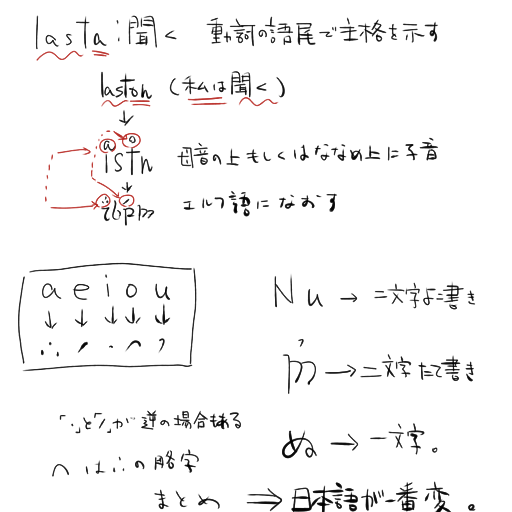 lasta:聞く 動詞の語尾で主格を示す
laston (私は聞く)
↓
a o
ısTn 母音の上もしくはななめ上に子音
↓
エルフ語になおす
a e i o u
↓ ↓ ↓ ↓ ↓
∴ ՛ · ⌒ ,
Nu → 二文字よこ書き
→ 二文字たて書き
ぬ → 一文字。
「・」と「՛」が逆の場合もある
へは∴の略字
まとめ ⇒ 日本語が一番変。